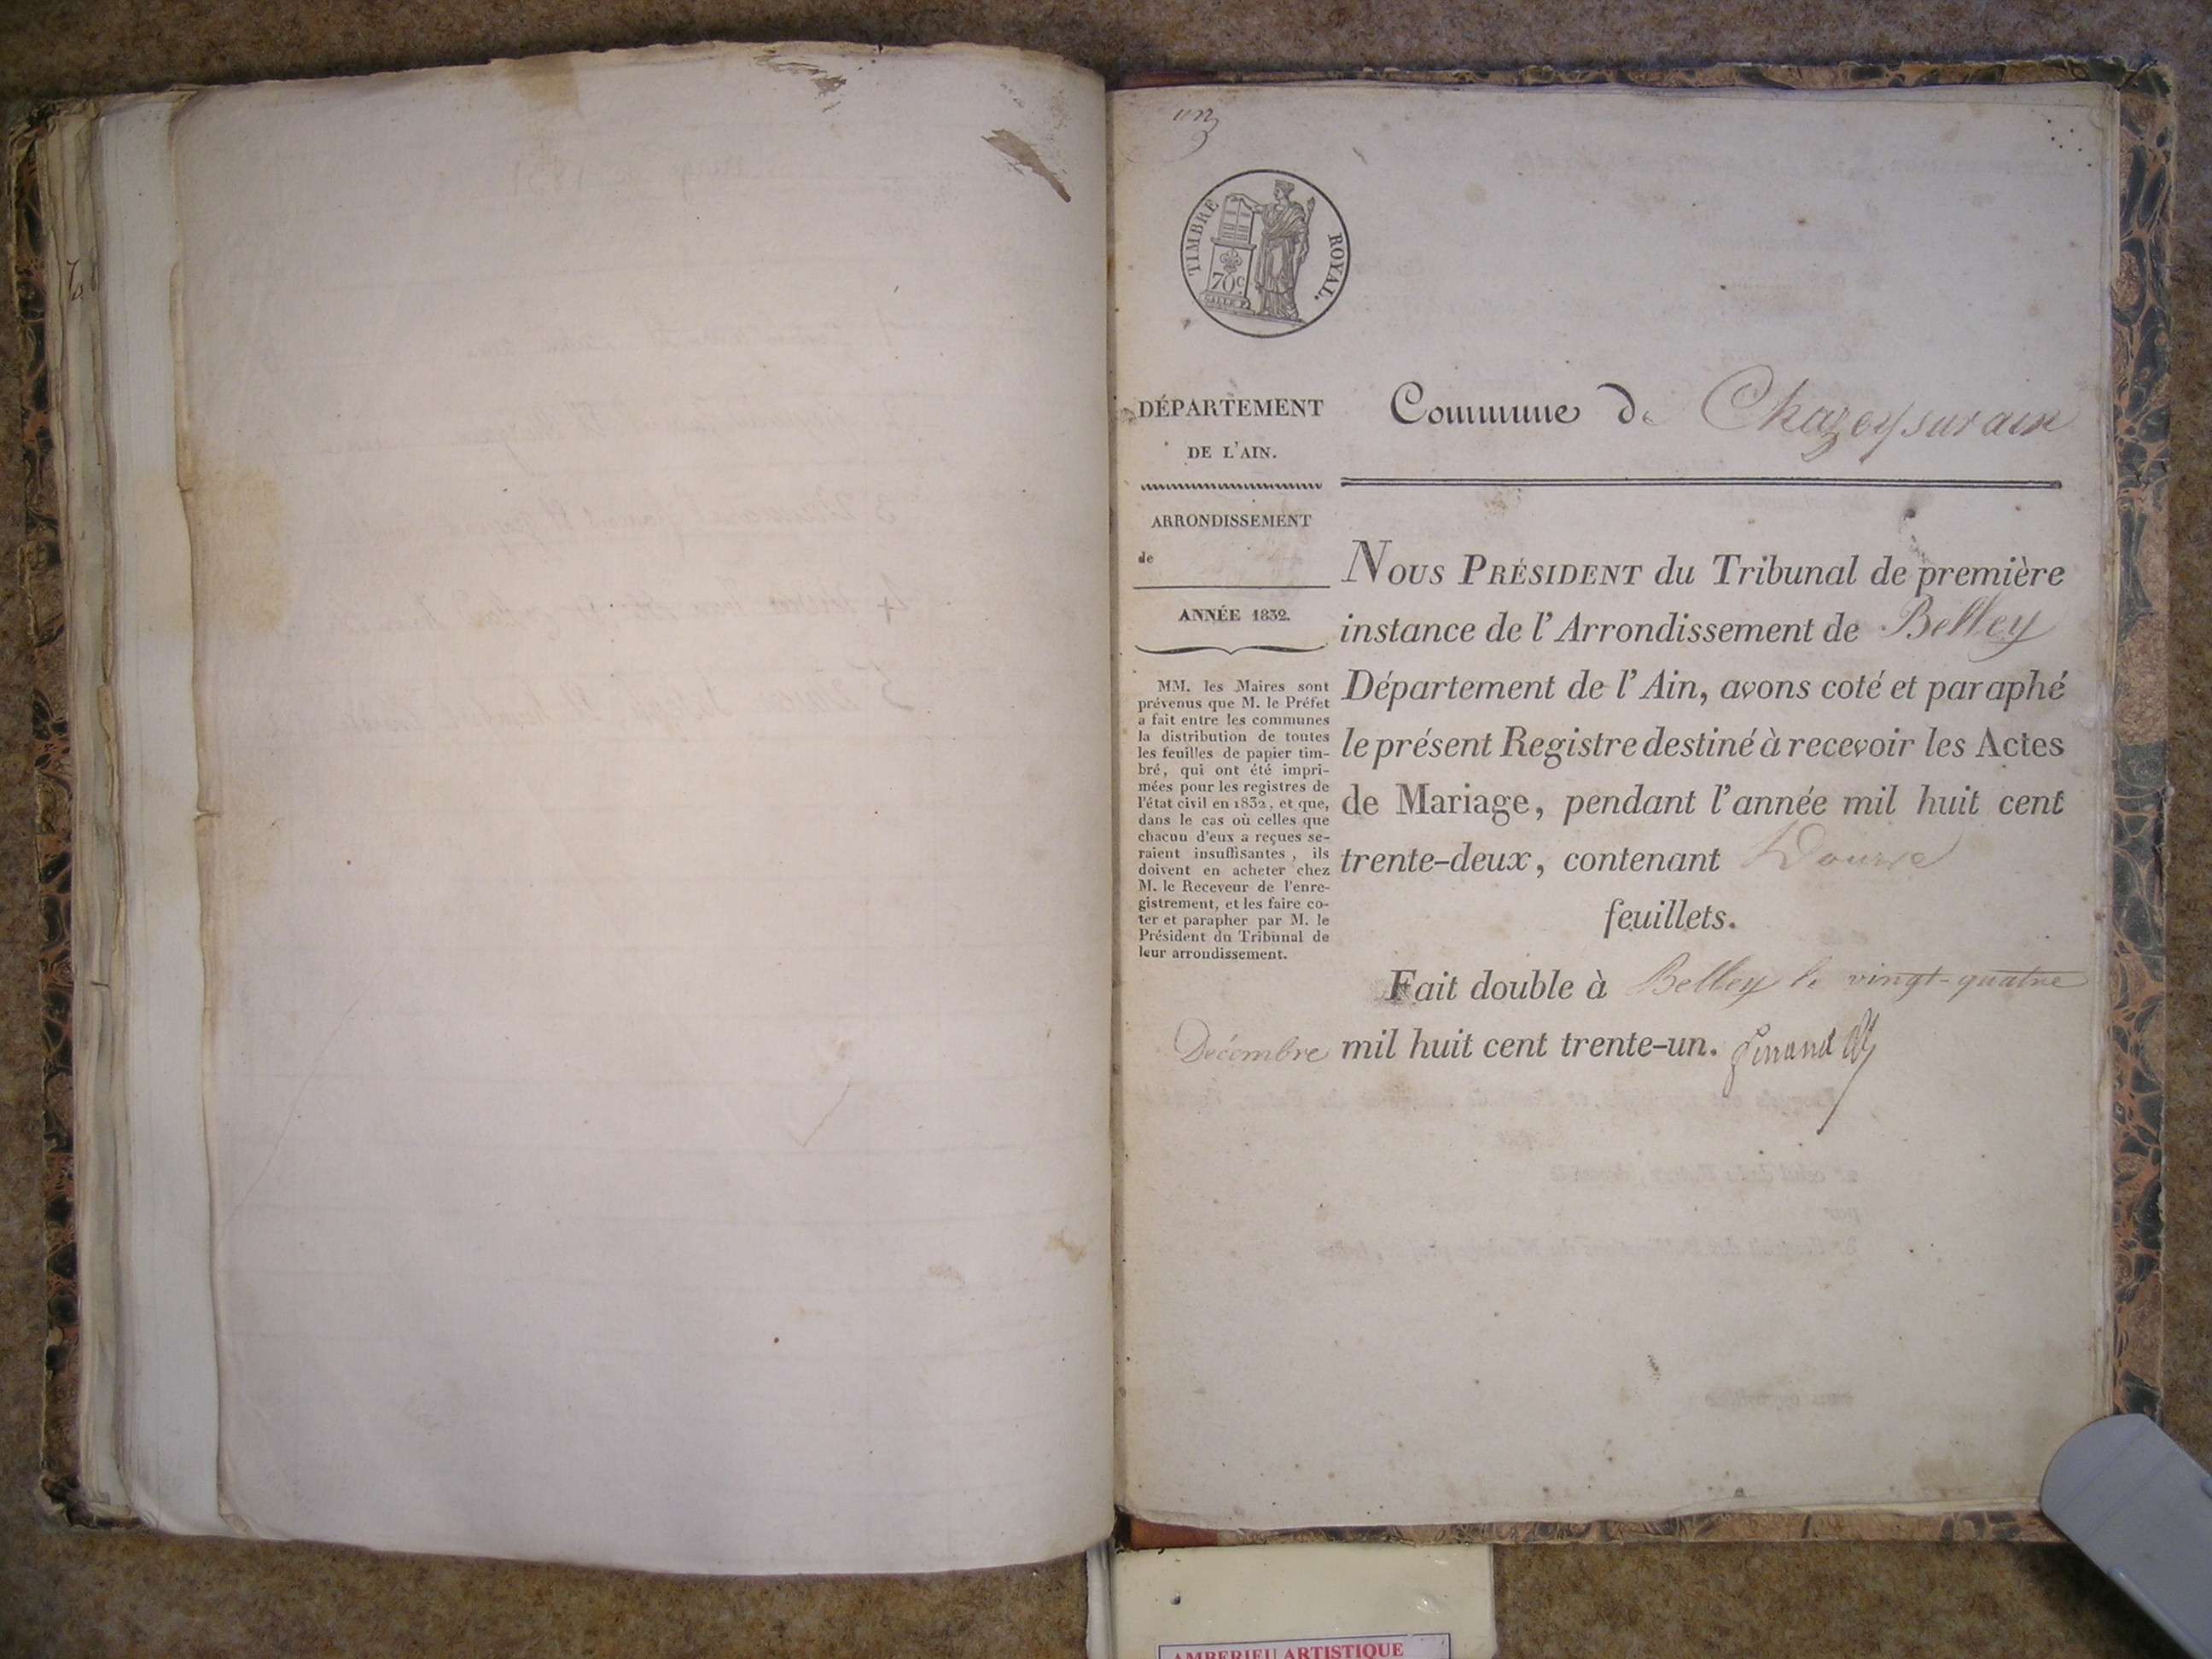 un
TIMBRE ROYAL.
70c
DÉPARTEMENT
DE L'AIN.
ARRONDISSEMENT
de
ANNÉE 1832.
MM. les Maires sont
prévenus que M. le Préfet
a fait entre les communes
la distribution de toutes
les feuilles de papier tim-
bré, qui ont été impri-
mées pour les registres de
l'état civil en 1832, et que,
dans le cas où celles que
chacun d'eux a reçues se-
raient insuffisantes, ils
doivent en acheter chez
M. le Receveur de l'enre-
gistrement, et les faire co-
ter et parapher par M. le
Président du Tribunal de
leur arrondissement.
Commune de Chazey sur ain
NOUS PRÉSIDENT du Tribunal de première
instance de l'Arrondissement de Belley
Département de l'Ain, avons coté et paraphé
le présent Registre destiné à recevoir les Actes
de Mariage, pendant l'année mil huit cent
trente-deux, contenant Douze
feuillets.
Fait double à Belley le vingt-quatre
Décembre mil huit cent trente-un.
AMBERIEU ARTISTIQUE